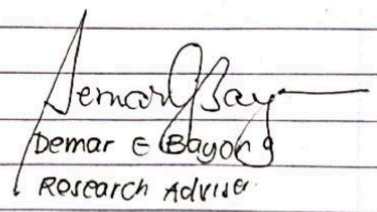 Demar G Bay
Demar E Bayong
Research Adviser